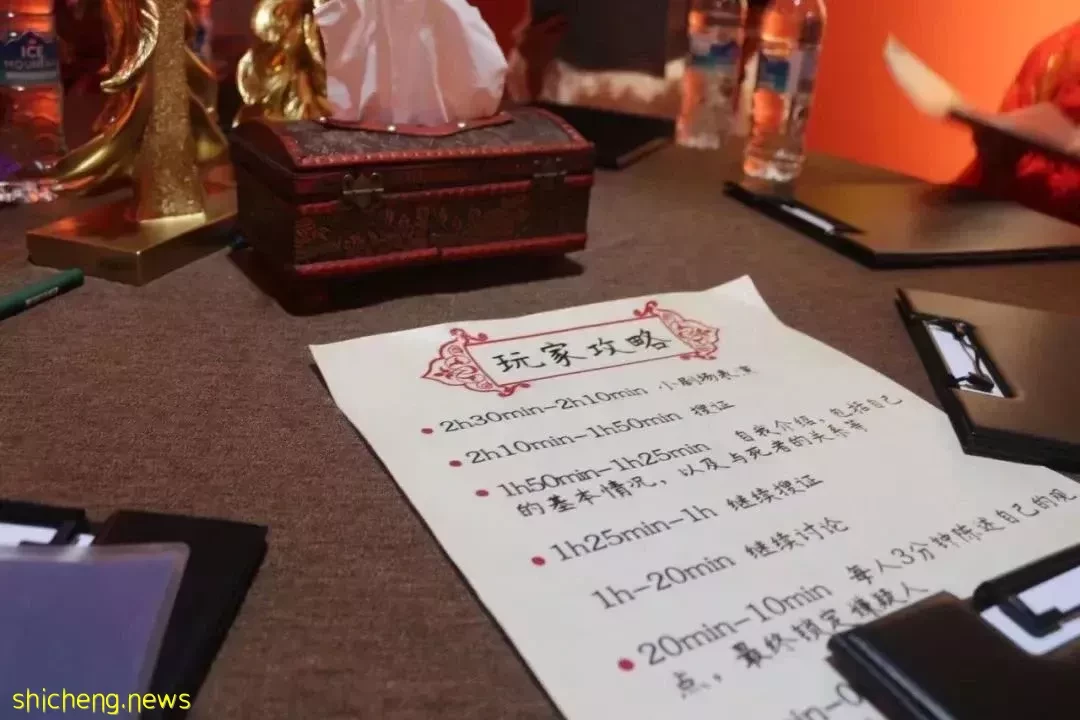 ICE
MOUNTAIN
玩家攻略
2h30min-2h10min 小剧场表演
2h10min-1h50min 搜证
1h50min-1h25min 自我介绍，包括自己
的基本情况，以及与死者的关系等
1h25min-1h 继续搜证
1h-20min 继续讨论
20min-10min 每人3分钟陈述自己的观
点，最终锁定嫌疑人
shicheng.news